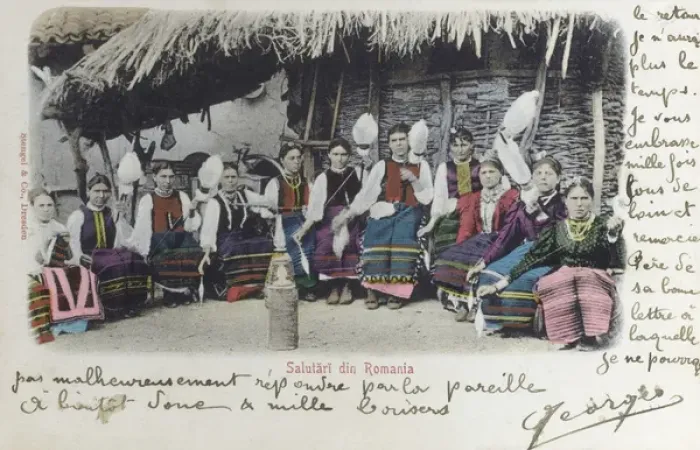 le retour
je n'aurai
plus le
temps.
Je vous
embrasse
mille fois
tous de
loin et
remercie
Père de
sa bonne
lettre à
laquelle
je ne pourrai
Stengel & Co., Dresden
Salutări din Romania
pas malheureusement répondre par la pareille
A bientôt donc & mille baisers
Georges